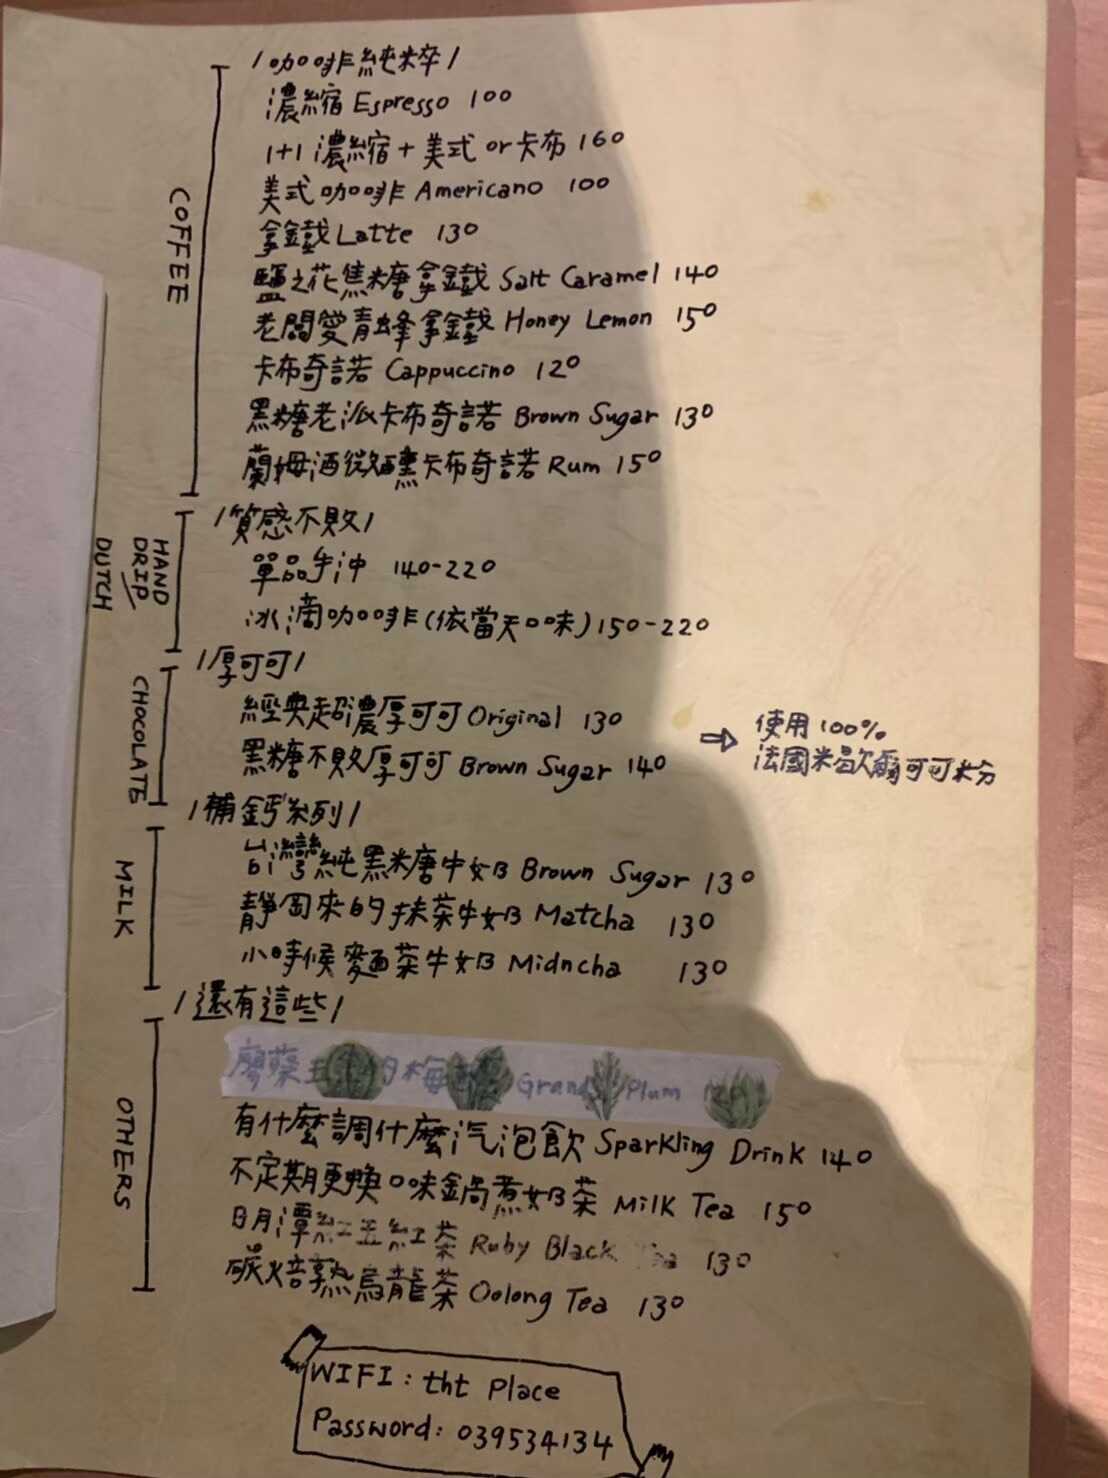 COFFEE
/咖啡純粹/
濃縮 Espresso 100
1+1 濃縮+美式 or 卡布 160
美式咖啡 Americano 100
拿鐵 Latte 130
鹽之花焦糖拿鐵 Salt Caramel 140
老闆愛青蜂拿鐵 Honey Lemon 150
卡布奇諾 Cappuccino 120
黑糖老派卡布奇諾 Brown Sugar 130
蘭姆酒微醺卡布奇諾 Rum 150
HAND DRIP/ DUTCH
/質感不敗/
單品手沖 140-220
冰滴咖啡(依當天口味) 150-220
CHOCOLATE
/厚可可/
經典超濃厚可可 Original 130
黑糖不敗厚可可 Brown Sugar 140
⇨ 使用100%
法國米歇爾可可粉
MILK
/補鈣系列/
台灣純黑糖牛奶 Brown Sugar 130
靜岡來的抹茶牛奶 Matcha 130
小時候麵茶牛奶 Midncha 130
OTHERS
/還有這些/
Plum
有什麼調什麼汽泡飲 Sparkling Drink 140
不定期更換口味鍋煮奶茶 Milk Tea 150
日月潭紅玉紅茶 Ruby Black 130
碳焙熟烏龍茶 Oolong Tea 130
WIFI: tht Place
Password: 039534134